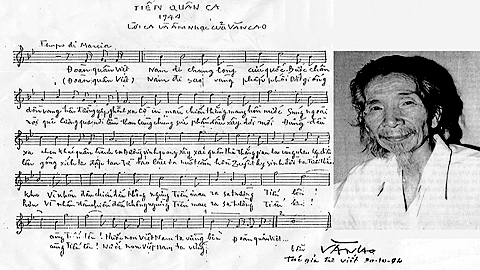 TIẾN QUÂN CA
1944
LỜI CA VÀ ÂM NHẠC CỦA VĂN CAO
Tempo di Marcia
Đoàn quân Việt Nam đi chung lòng cứu quốc. Bước chân
(Đoàn quân Việt) Nam đi sao vàng phấp phới. Dắt giống
dồn vang trên đường gập ghềnh xa. Cờ in máu chiến thắng mang hồn nước. Súng ngoài
nòi quê hương qua nơi lầm than. Cùng chung sức phấn đấu xây đời mới. Đứng đều
xa chen khúc quân hành ca. Đường vinh quang xây xác quân thù. Thắng gian lao cùng nhau lập chiến
lên gông xích ta đập tan. Từ bao lâu ta nuốt căm hờn. Quyết hy sinh đời ta
khu. Vì nhân dân chiến đấu không ngừng. Tiến mau ra sa trường. Tiến lên!
hơn. Vì nhân dân chiến đấu không ngừng. Tiến mau ra sa trường. Tiến lên!
cùng tiến lên! Nước non Việt Nam ta vững bền. Đoàn quân Việt
cùng tiến lên! Nước non Việt Nam ta vững
VĂN CAO
Tác giả 20-10-94